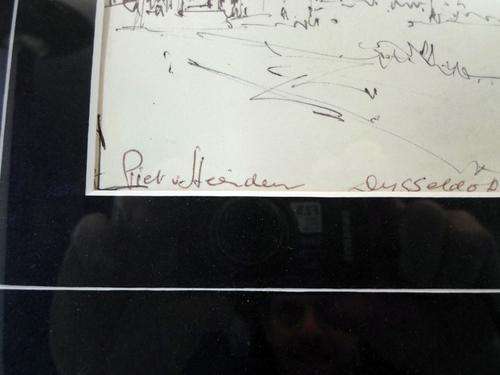 Piet v. Heerden Dusseldo